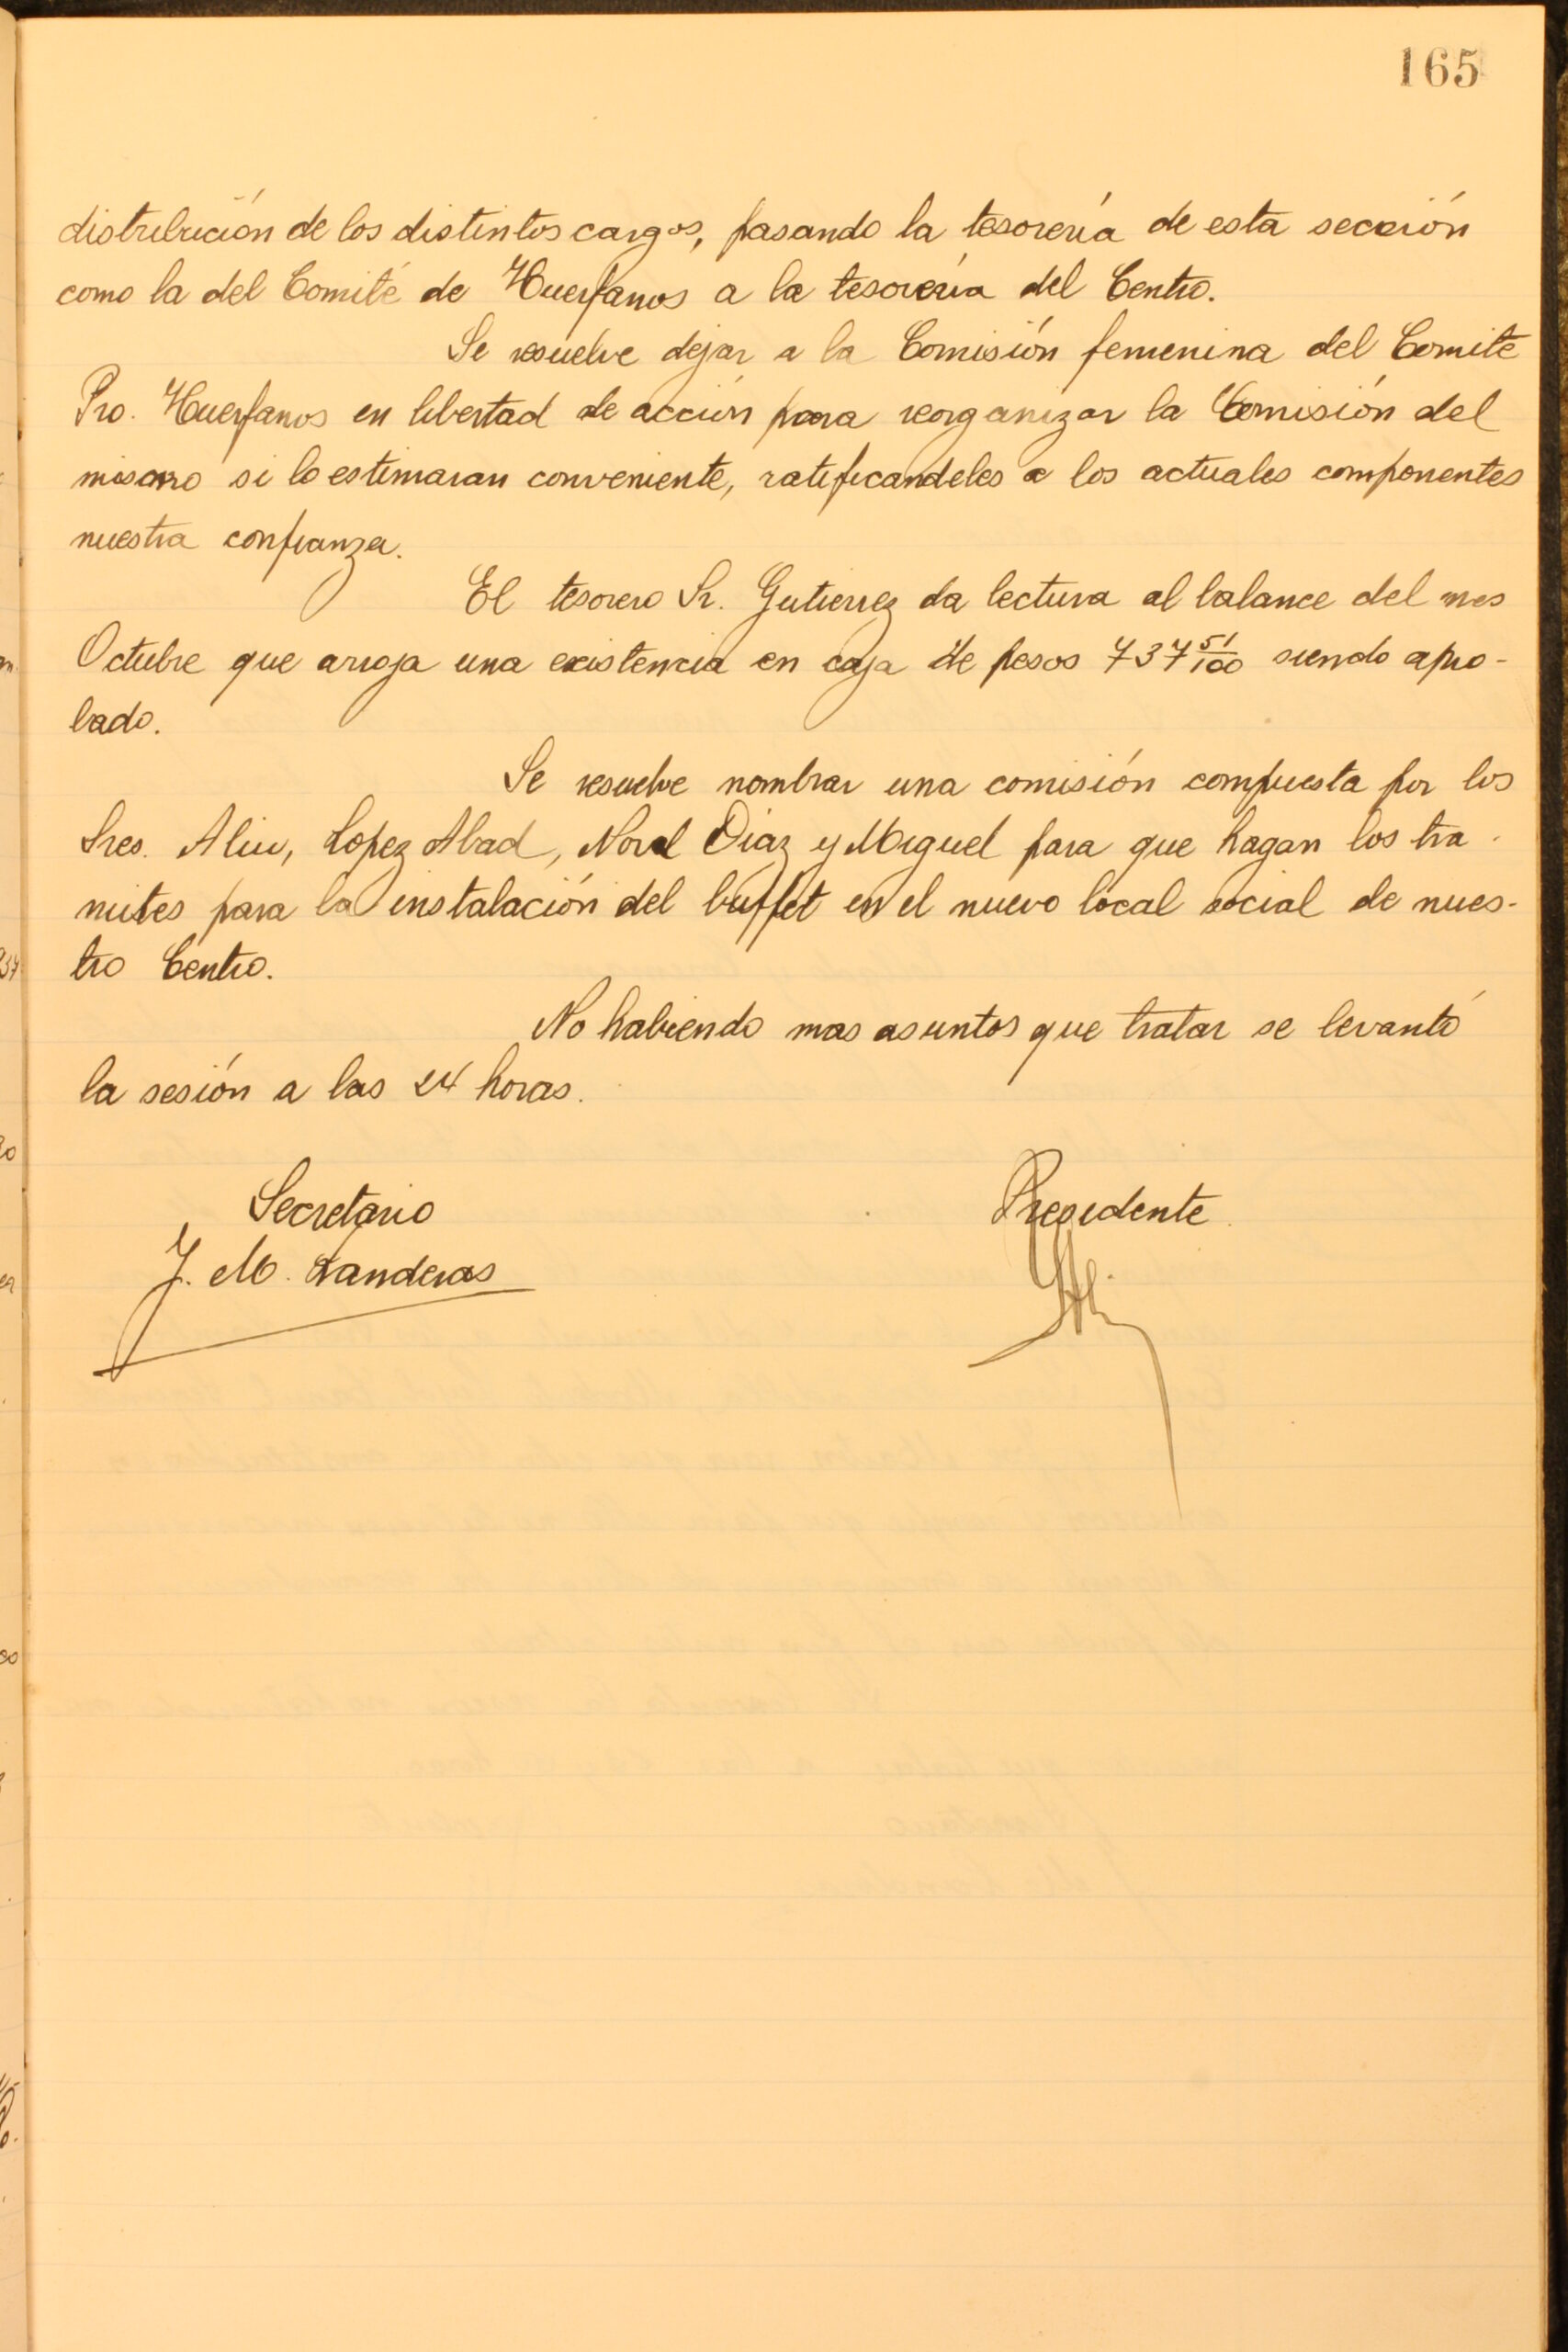 165
distribución de los distintos cargos, pasando la tesorería de esta sección
como la del Comité de Huerfanos a la tesorería del Centro.
Se resuelve dejar a la Comisión femenina del Comite
Pro. Huerfanos en libertad de acción para reorganizar la Comisión del
mismo si lo estimaran conveniente, ratificandeles a los actuales componentes
nuestra confianza.
El tesorero Sr. Gutierrez da lectura al balance del mes
Octubre que arroja una existencia en caja de pesos 737 51/100 siendo apro-
bado.
Se resuelve nombrar una comisión compuesta por los
Sres. Lopez Abad, Noval Diaz y Miguel para que hagan los tra-
mites para la instalación del buffet en el nuevo local social de nues-
tro Centro.
No habiendo mas asuntos que tratar se levantó
la sesión a las 24 horas.
Secretario
Presidente
J. M. Landeras